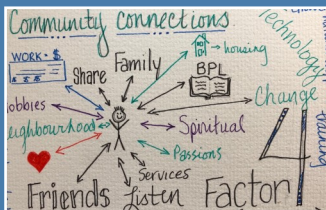 Community connections
Technology
WORK • $
Share
Family
housing
BPL
Change
hobbies
Neighbourhood
Spiritual
Passions
Services
Friends
Listen
Factor
4